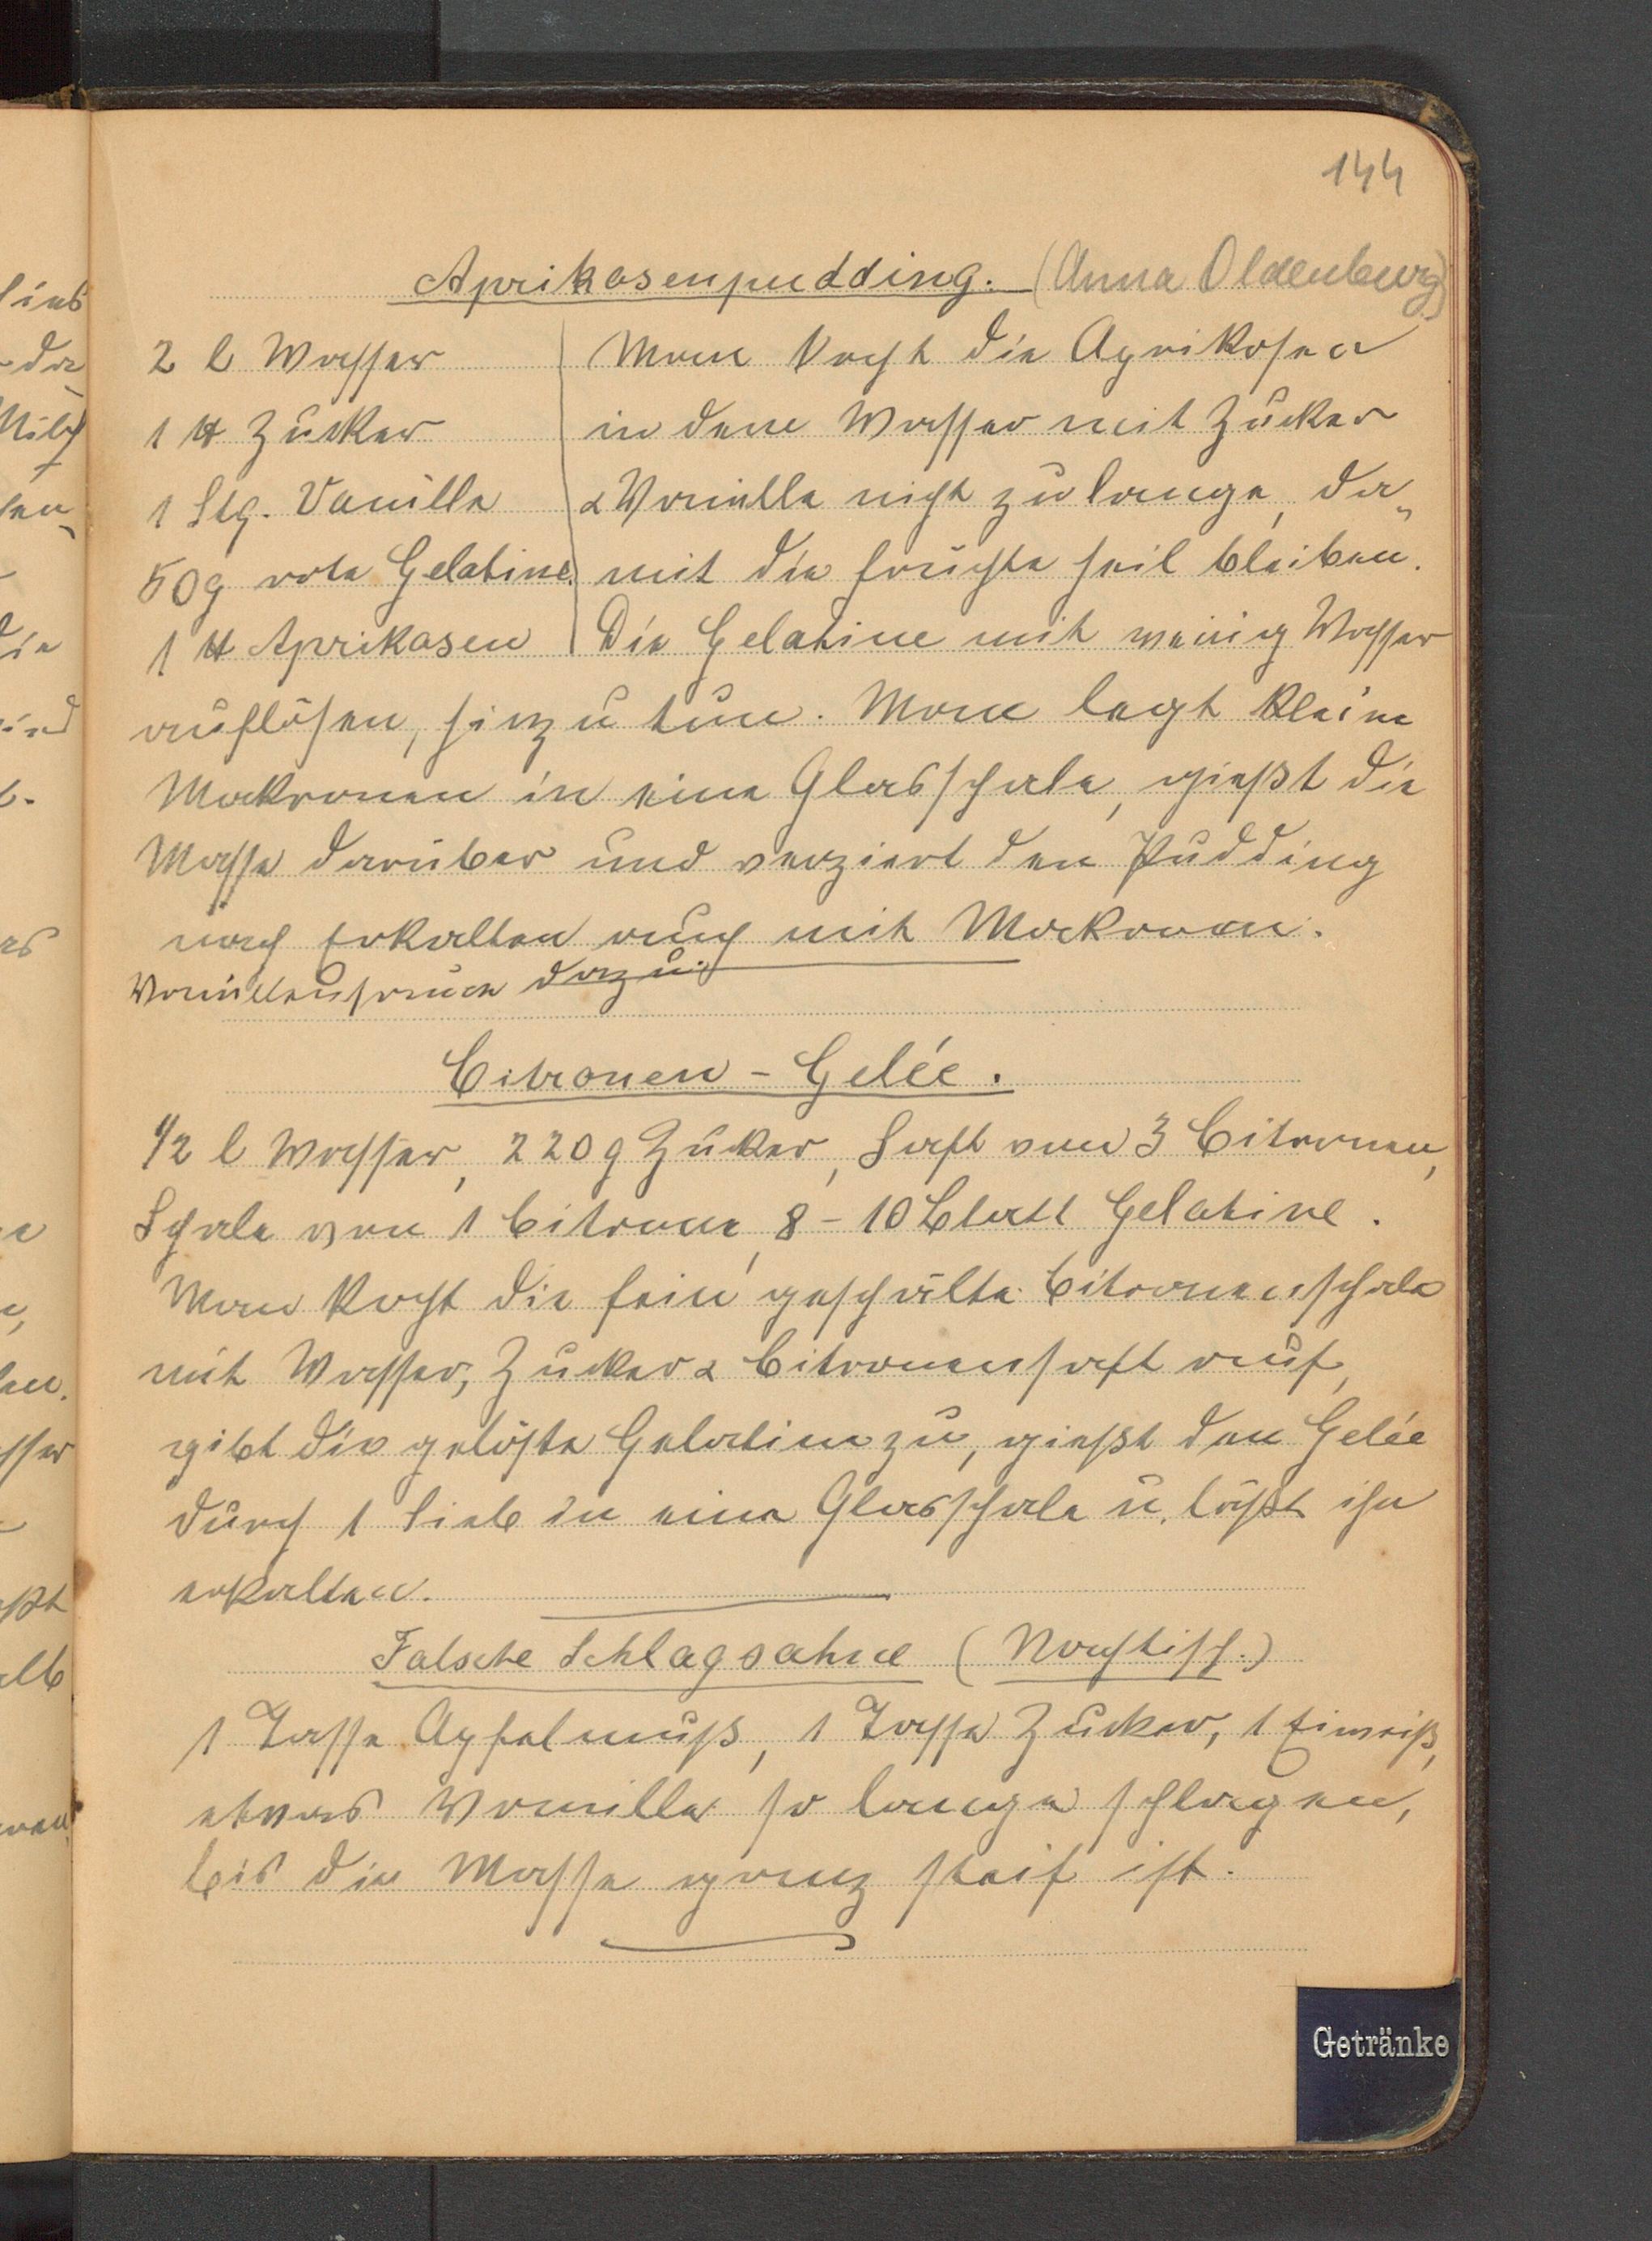 144
Aprikosenpudding. (Anna Oldenburg)
2 l Wasser
1 ℔ Zucker
1 Stg. Vanille
50g rote Gelatine.
1 ℔ Aprikosen
Man kocht die Aprikosen
in dem Wasser mit Zucker
& Vanille nicht zu lange, da-
mit die Früchte heil bleiben.
Die Gelatine mit wenig Wasser
auflösen, hinzu tun. Man legt kleine
Makronen in eine Glasschale, gießt die
Masse darüber und verziert den Pudding
nach Erkalten auch mit Makronen.
Vanillensauce dazu.
Citronen-Gelée.
1/2 l Wasser, 220 g Zucker, Saft von 3 Citronen,
Schale von 1 Citrone, 8-10 Blatt Gelatine.
Man kocht die fein geschälte Citronenschale
mit Wasser, Zucker & Citronensaft auf,
gibt die gelöste Gelatine zu, gießt den Gelée
durch 1 Sieb in eine Glasschale u. läßt ihn
erkalten.
Falsche Schlagsahne (Nachtisch.)
1 Tasse Apfelmuß, 1 Tasse Zucker, 1 Eiweiß,
etwas Vanille so lange schlagen,
bis die Masse ganz steif ist.
Getränke